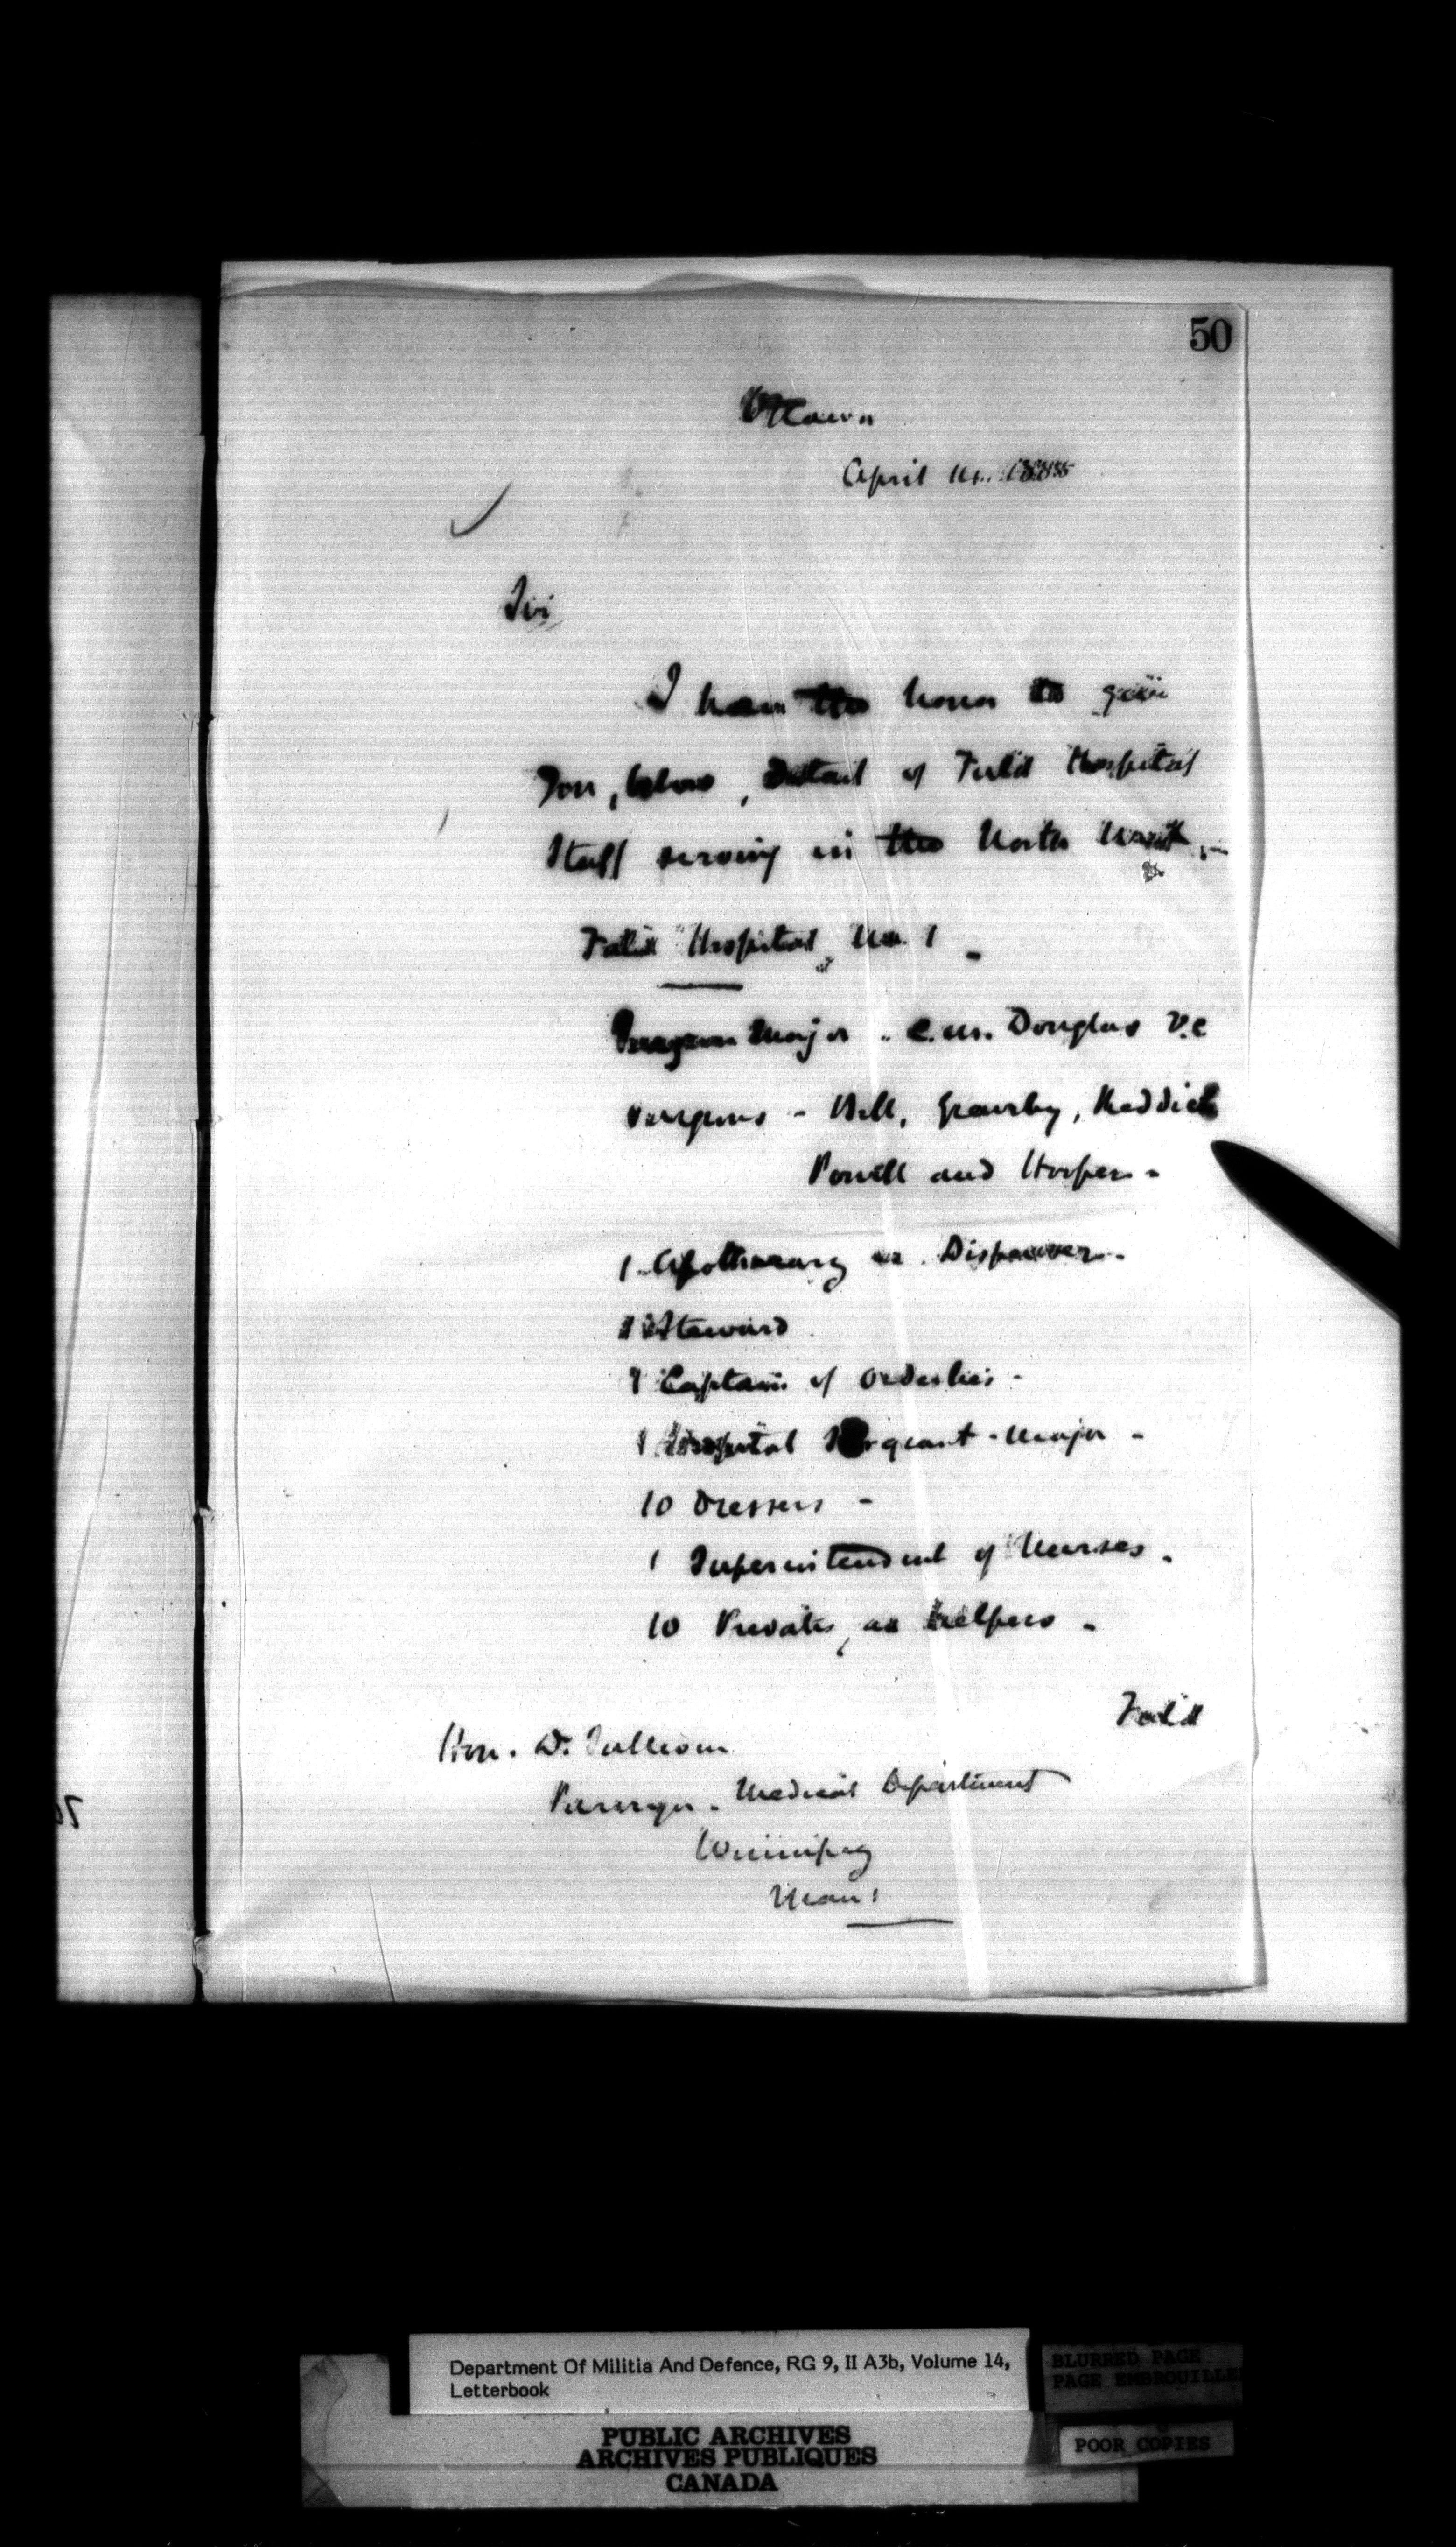 50
Ottawa
April 14. 1885
Sir
I have the honor to give
you, below, detail of Field Hospital
Staff serving in the North West,-
Field Hospital, No. 1 -
Surgeon Major - C.M. Douglas V.C
Surgeons - Bell, Gravely, Reddick
Powell and Horsey -
1 Apothecary or Dispenser -
1 Steward
1 Captain of Orderlies -
1 Hospital Sergeant-Major -
10 Dressers -
1 Superintendent of Nurses -
10 Privates, as helpers -
Field
Hon. Dr. Sullivan
Purveyor - Medical Department
Winnipeg
Man:
Department Of Militia And Defence, RG 9, II A3b, Volume 14,
Letterbook
BLURRED PAGE
PAGE EMBROUILLE
POOR COPIES
PUBLIC ARCHIVES
ARCHIVES PUBLIQUES
CANADA